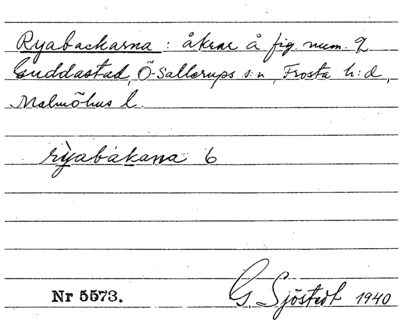 Ryabackarna : åkrar å fig. num. 9
Guddastad, Ö-Sallerups s:n, Frosta h:d,
Malmöhus l.
ryabakana 6
Nr 5573.
G. Sjöstedt 1940